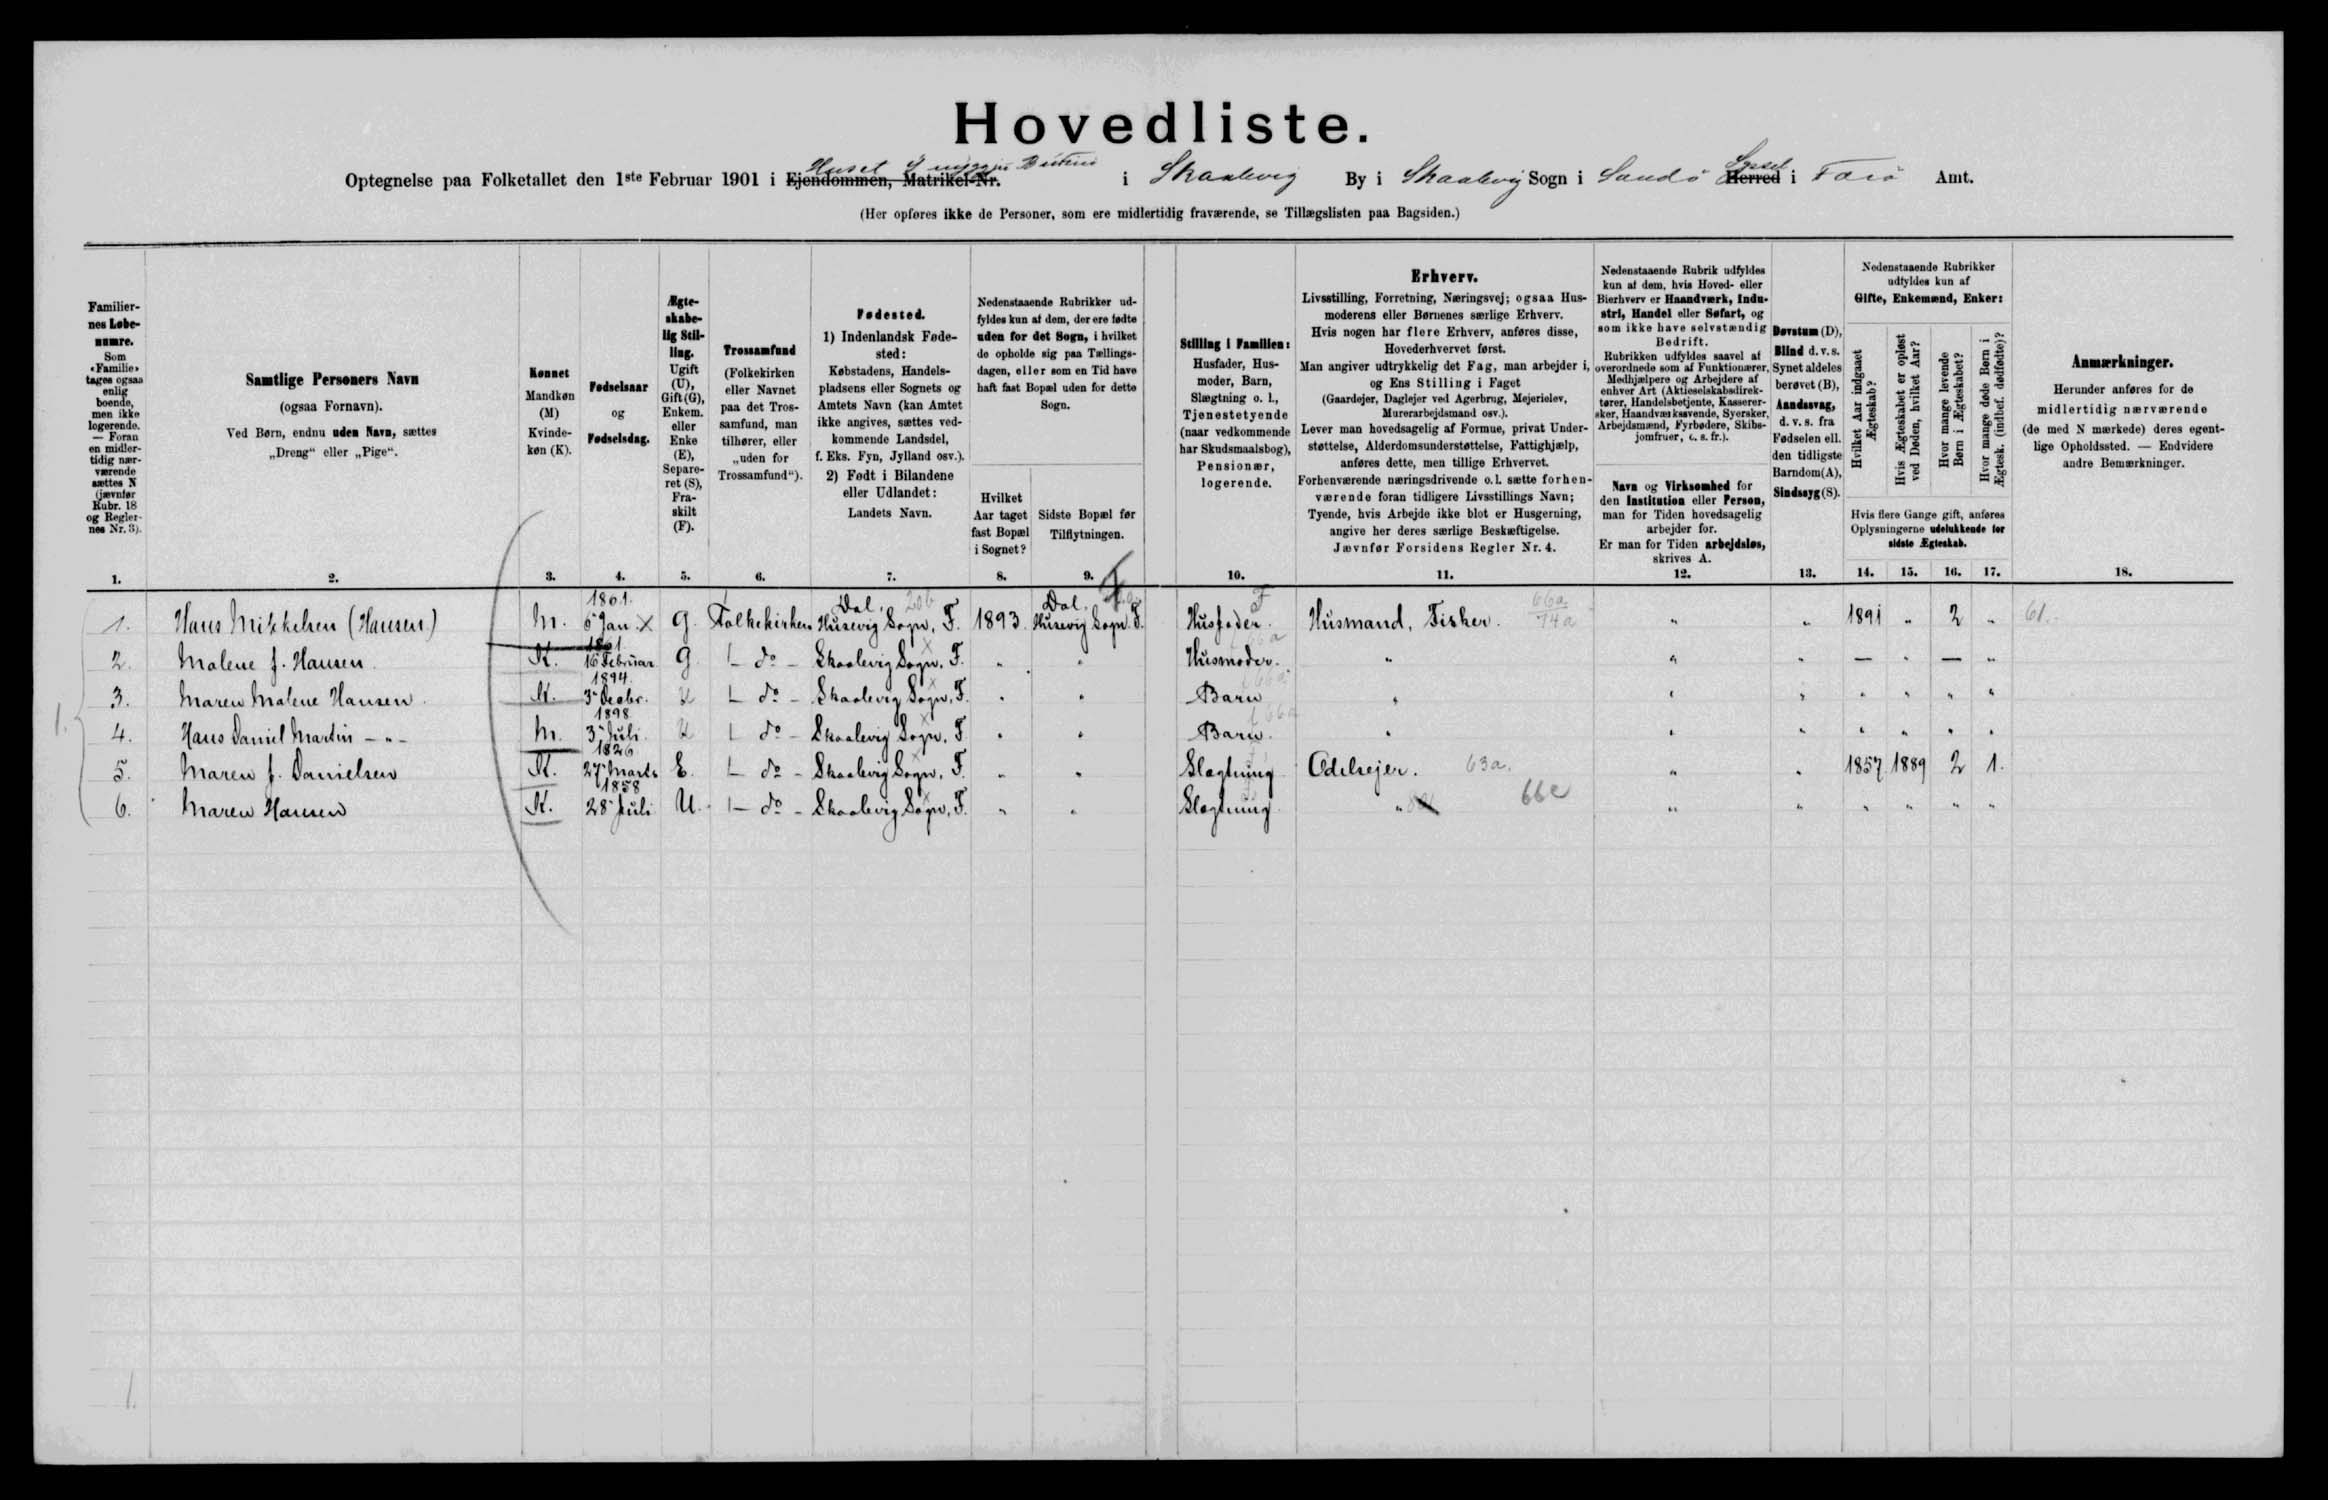 Hovedliste.
Huset I
Optegnelse paa Folketallet den 1ste Februar 1901 i Ejendommen, Matrikel-Nr. i Skaalevig By i Skaalevig Sogn i Sandø Syssel Herred i Færø Amt.
(Her opføres ikke de Personer, som ere midlertidig fraværende, se Tillægslisten paa Bagsiden.)
Familier-
nes Løbe-
numre.
Som
«Familie»
tages ogsaa
enlig
boende,
men ikke
logerende.
— Foran
en midler-
tidig nær-
værende
sættes N
(jævnfør
Rubr. 18
og Regler-
nes Nr. 3).
1.
Samtlige Personers Navn
(ogsaa Fornavn).
Ved Børn, endnu uden Navn, sættes
„Dreng“ eller „Pige“.
2.
Kønnet
Mandkøn
(M)
Kvinde-
køn (K).
3.
Fødselsaar
og
Fødselsdag.
4.
Ægte-
skabe-
lig Stil-
ling.
Ugift
(U),
Gift (G),
Enkem.
eller
Enke
(E),
Separe-
ret (S),
Fra-
skilt
(F).
5.
Trossamfund
(Folkekirken
eller Navnet
paa det Tros-
samfund, man
tilhører, eller
„uden for
Trossamfund“).
6.
Fødested.
1) IndenlandskFøde-
sted:
Købstadens, Handels-
pladsens eller Sognets og
Amtets Navn (kan Amtet
ikke angives, sættes ved-
kommende Landsdel,
f. Eks. Fyn, Jylland osv.).
2) Født i Bilandene
eller Udlandet:
Landets Navn.
7.
Nedenstaaende Rubrikker ud-
fyldes kun af dem, der ere fødte
uden for det Sogn, i hvilket
de opholde sig paa Tællings-
dagen, eller som en Tid have
haft fast Bopæl uden for dette
Sogn.
Hvilket
Aar taget
fast Bopæl
i Sognet?
8.
Sidste Bopæl før
Tilflytningen.
9.
Stilling i Familien:
Husfader, Hus-
moder, Barn,
Slægtning o. l.,
Tjenestetyende
(naar vedkommende
har Skudsmaalsbog),
Pensionær,
logerende.
10.
Erhverv.
Livsstilling, Forretning, Næringsvej; ogsaa Hus-
moderens eller Børnenes særlige Erhverv.
Hvis nogen har flere Erhverv, anføres disse,
Hovederhvervet først.
Man angiver udtrykkelig det Fag, man arbejder i,
og Ens Stilling i Faget
(Gaardejer, Daglejer ved Agerbrug, Mejerielev,
Murerarbejdsmand osv.).
Lever man hovedsagelig af Formue, privat Under-
støttelse, Alderdomsunderstøttelse, Fattighjælp,
anføres dette, men tillige Erhvervet.
Forhenværende næringsdrivende o.l. sætte forhen-
værende foran tidligere Livsstillings Navn;
Tyende, hvis Arbejde ikke blot er Husgerning,
angive her deres særlige Beskæftigelse.
Jævnfør Forsidens Regler Nr. 4.
11.
Nedenstaaende Rubrik udfyldes
kun af dem, hvis Hoved- eller
Bierhverv er Haandværk, Indu-
stri, Handel eller Søfart, og
som ikke have selvstændig
Bedrift.
Rubrikken udfyldes saavel af
overordnede som af Funktionærer,
Medhjælpere og Arbejdere af
enhver Art (Aktieselskabsdirek-
tører, Handelsbetjente, Kasserer-
sker, Haandværkssvende, Syersker,
Arbejdsmænd, Fyrbødere, Skibs-
jomfruer, o. s. fr.).
Navn og Virksomhed for
den Institution eller Person,
man for Tiden hovedsagelig
arbejder for.
Er man for Tiden arbejdsløs,
skrives A.
12.
Døvstum (D),
Blind d. v. s.
Synet aldeles
berøvet (B),
Aandssvag,
d. v. s. fra
Fødselen ell.
den tidligste
Barndom (A),
Sindssyg (S).
13.
Nedenstaaende Rubrikker
udfyldes kun af
Gifte, Enkemænd, Enker:
Hvilket Aar indgaaet
Ægteskab?
Hvis Ægteskabet er opløst
ved Døden, hvilket Aar?
Hvor mange levende
Børn i Ægteskabet?
Hvor mange døde Børn i
Ægtesk. (indbef. dødfødte)?
Hvis flere Gange gift, anføres
Oplysningerne udelukkende for
sidste Ægteskab.
14. 15. 16. 17.
Anmærkninger.
Herunder anføres for de
midlertidig nærværende
(de med N mærkede) deres egent-
lige Opholdssted. — Endvidere
andre Bemærkninger.
18.
1861. Dal. 20b Dal. F
1. Hans Mikkelsen (Hansen) M. 5 Jan. X G. Folkekirken Husevig Sogn, F. 1893. Husevig Sogn. F. Husfader. Husmand, Fisker. 66a 74a " " 1891 " 2 " 61.
1861
2. Malene f. Hansen K. 16 Februar G. do Skaalevig Sogn, F. " " Husmoder. " " " — " — "
1894.
3. Maren Malene Hansen K. 3 Decbr. U do Skaalevig Sogn, F. " " Barn " " " " " " "
1898
4. Hans Daniel Martin — " — M. 3 Juli. U do Skaalevig Sogn, F " " Barn. " " " " " " "
1826
5. Maren f. Danielsen K. 27 Marts E. do Skaalevig Sogn, F. " " Slægtning Odelsejer. 63a. " " 1857 1889 2 1.
1858
6. Maren Hansen K. 28 Juli U. do Skaalevig Sogn, F. " " Slægtning " 66e " " " " " "
1.
1.